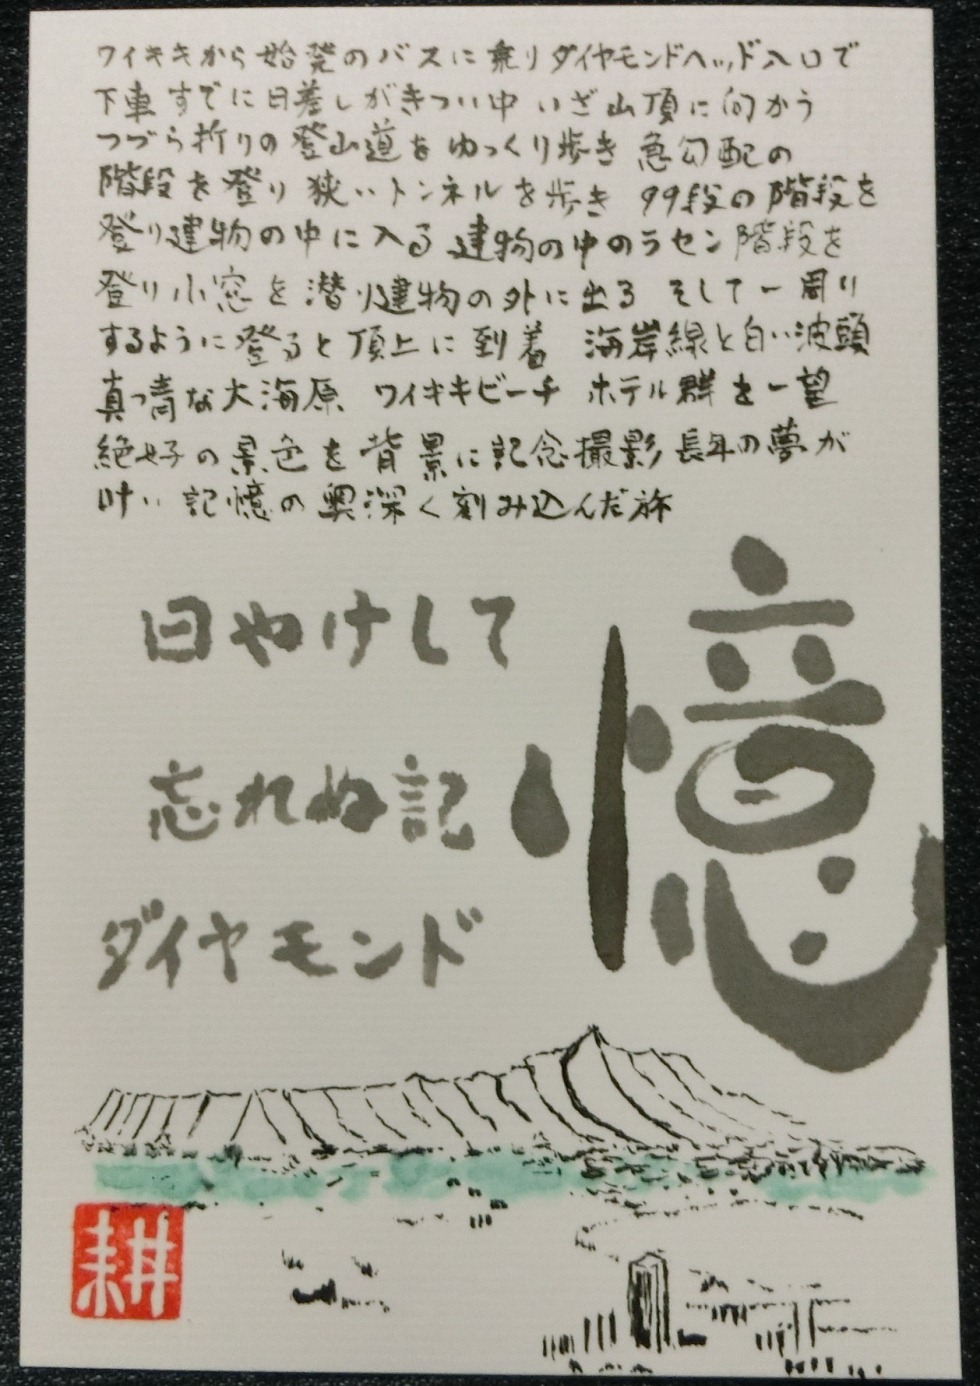 ワイキキから始発のバスに乗りダイヤモンドヘッド入口で
下車 すでに日差しがきつい中 いざ山頂に向かう
つづら折りの登山道をゆっくり歩き 急勾配の
階段を登り 狭いトンネルを歩き 99段の階段を
登り建物の中に入る 建物の中のラセン階段を
登り小窓を潜り建物の外に出る そして一周り
するように登ると頂上に到着 海岸線と白い波頭
真っ青な大海原 ワイキキビーチ ホテル群を一望
絶好の景色を背景に記念撮影 長年の夢が
叶い 記憶の奥深く刻み込んだ旅
憶
日やけして
忘れぬ記
ダイヤモンド
耕